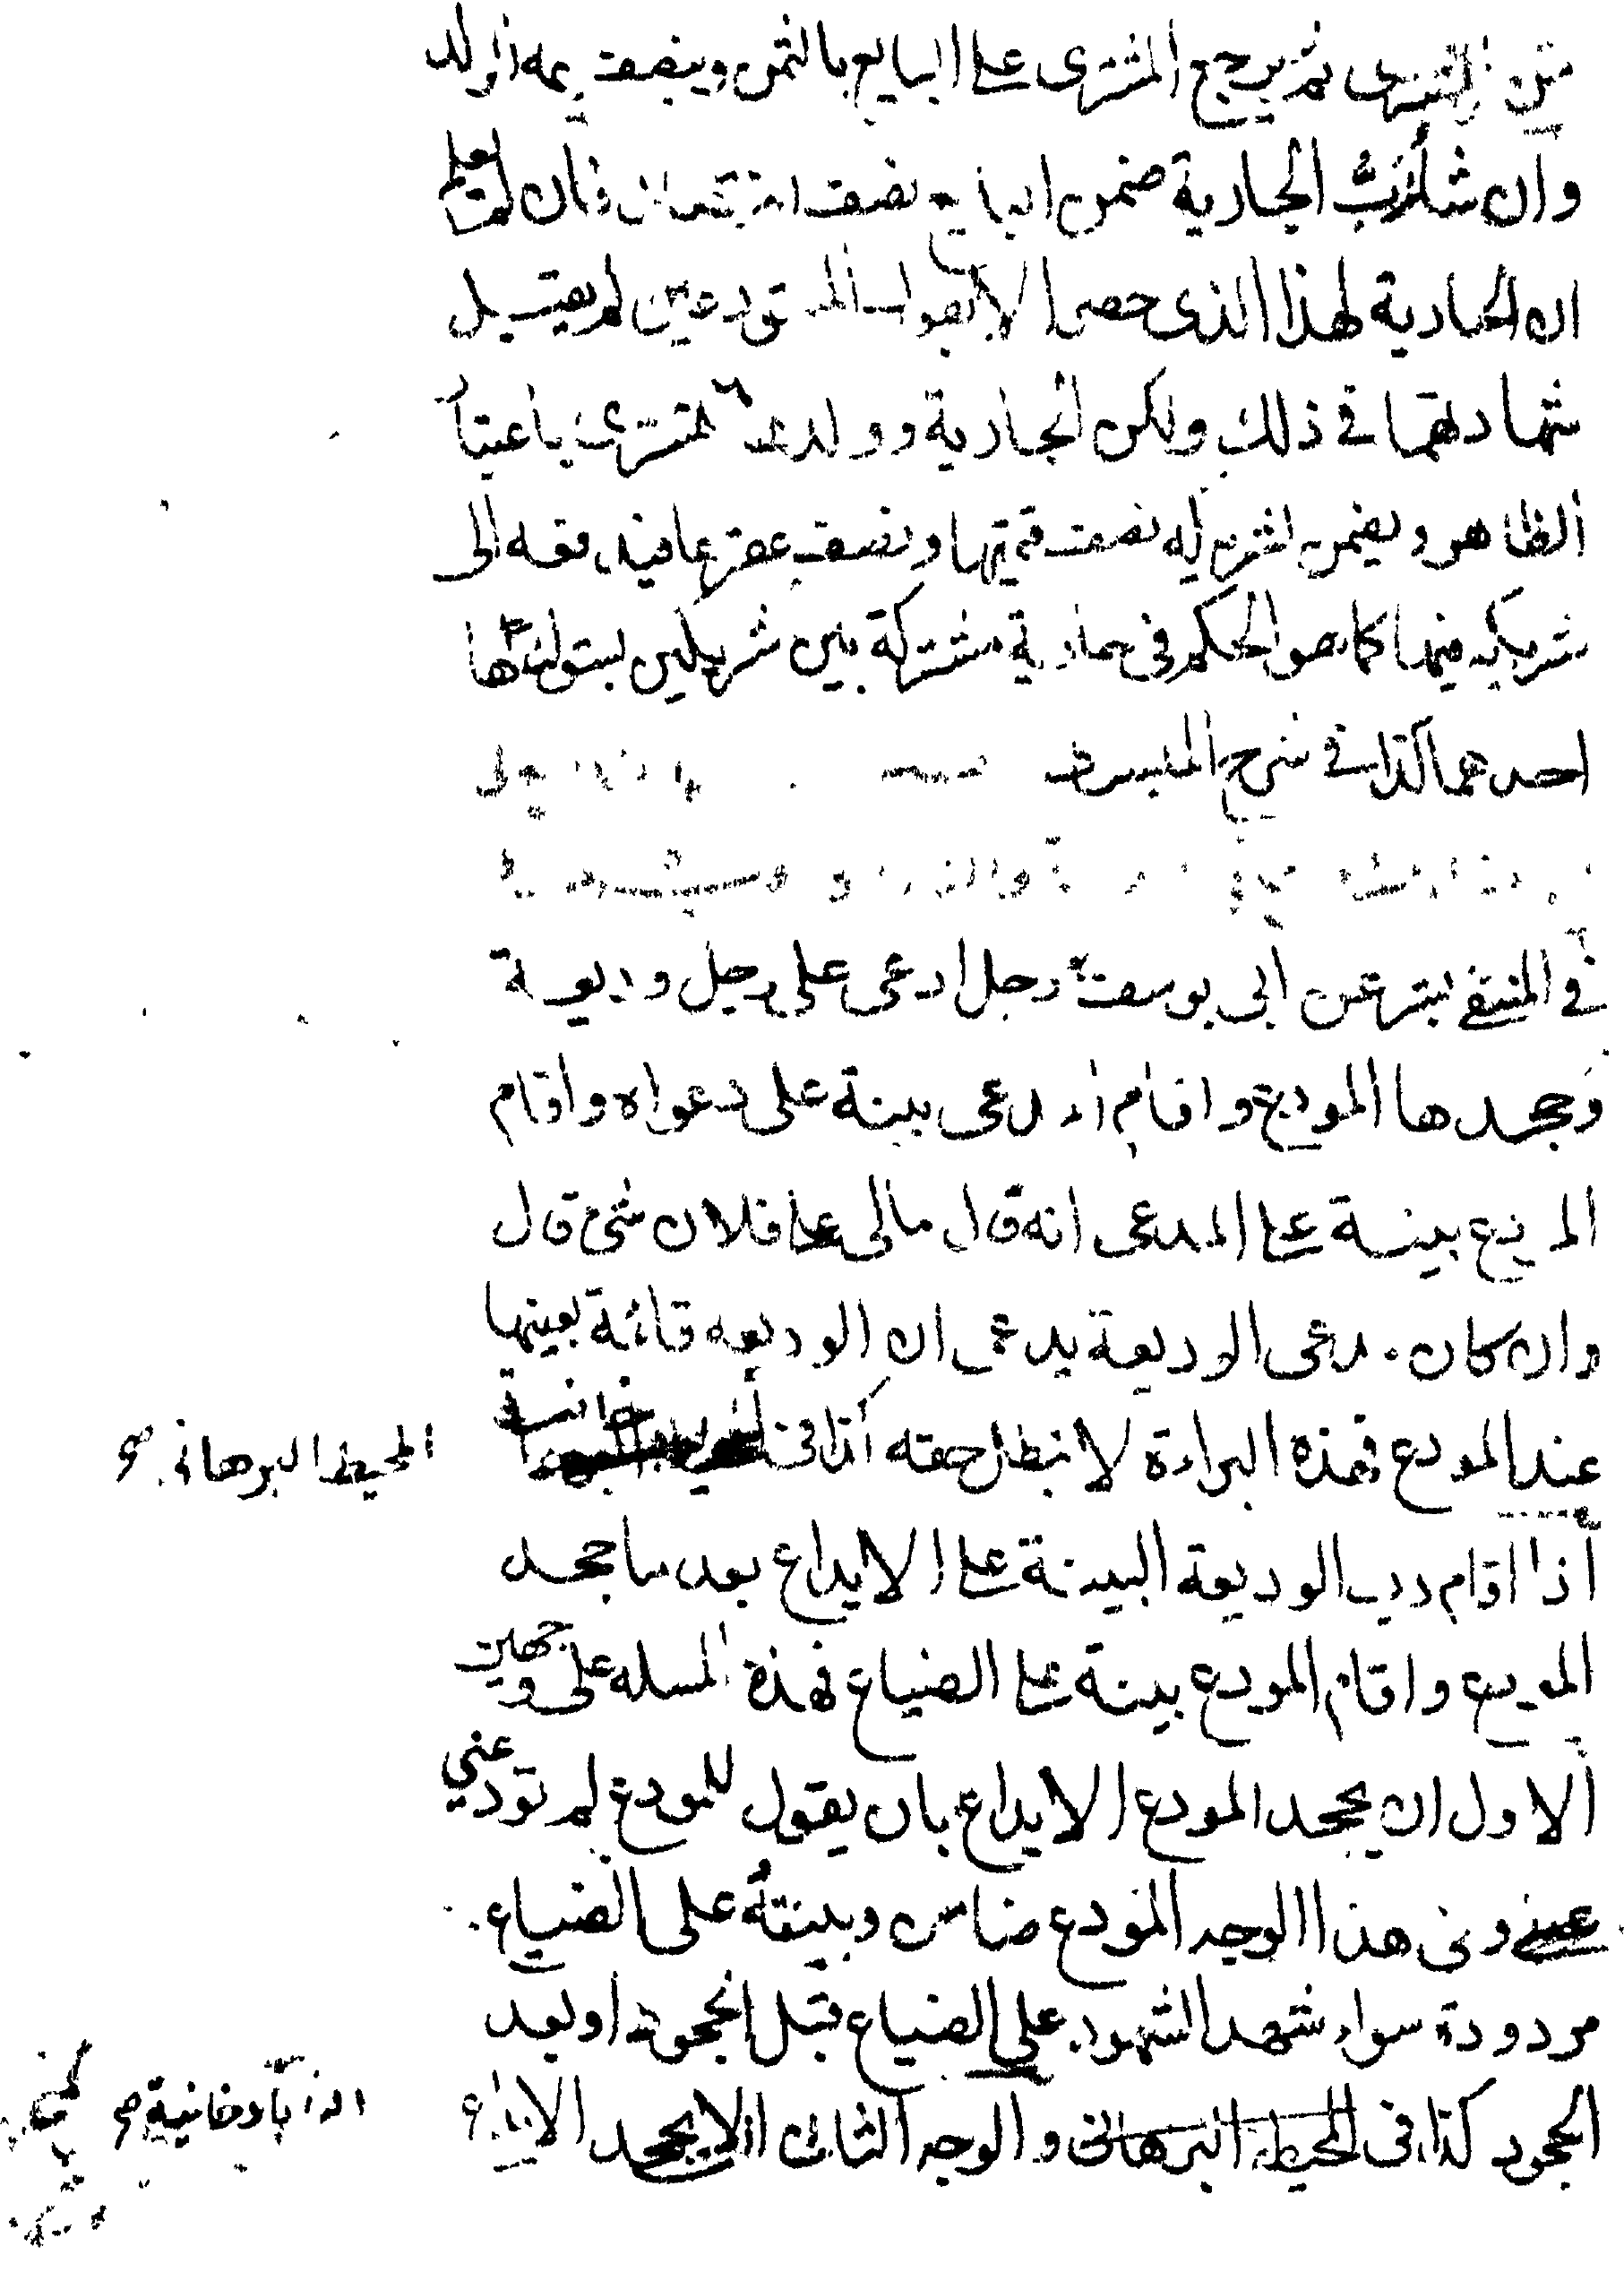 من المشترى ثم يرجع المشترى على البايع بالثمن وبنصف قيمة الولد
وان شاء رب الجارية ضمن البايع نصف النقصان فان لم يعلم
ان الجارية لهذا الذى حصرا الا بقول المستودعين لم يقبل
شهادتهما فى ذلك ولكن الجارية وولدها للمشترى باعتبار
الظاهر ويضمن لشريكه نصف قيمتها ونصف عقرها فيدفعه الى
شريكه فيهما كما هو الحكم فى جارية مشتركة بين شريكين يستولدها
احدهما كذا فى شرح المبسوط
فى المنتقى بشر عن ابى يوسف رجل ادعى على رجل وديعة
وجحدها المودع واقام المدعى بينة على دعواه واقام
المودع بينة على المدعى انه قال مالى على فلان شئ قال
وان كان مدعى الوديعة يدعى ان الوديعه قائمة بعينها
عند المودع فهذه البراءة لا تبطل حقه كذا فى تاتارخانية
المحيط البرهانى صح
اذا اقام رب الوديعة البينة على الايداع بعد ما جحد
المودع واقام المودع بينة على الضياع فهذه المسله على وجهين
الاول ان يجحد المودع الايداع بان يقول للمودع لم تودعنى
عنى وفى هذا الوجه المودع ضامن وبينته على الضياع
مردودة سواء شهد الشهود على الضياع قبل الجحود او بعد
الجحود كذا فى المحيط البرهانى والوجه الثانى ان لا يجحد الايداع
التاتارخانية صح